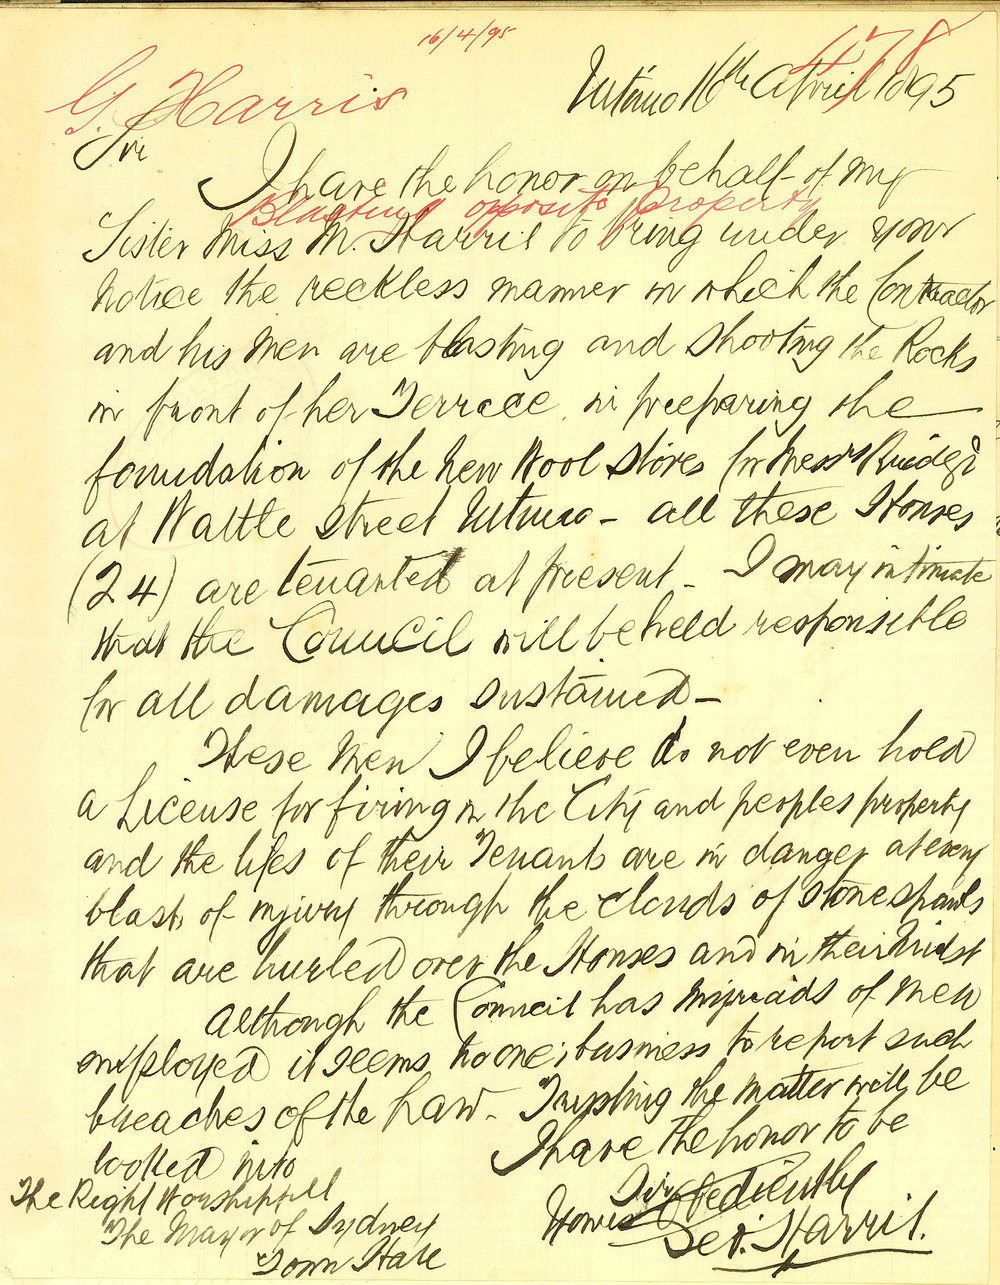 16/4/95
478
G. Harris
Ultimo 16th April 1895
Sir
I have the honor on behalf of my
Blasting opposite property
Sister Miss M. Harris to bring under your
notice the reckless manner in which the Contractor
and his men are blasting and shooting the Rocks
in front of her Terrace in preeparing the
foundation of the new Wool Stores for Messrs
at Wattle Street Ultimo - all these Houses
(24) are tenanted at present - I may intimate
that the Council will be held responsible
for all damages sustained -
These Men I believe do not even hold
a License for firing in the City and peoples property
and the lifes of their Tenants are in danger at every
blast, of injury through the clouds of stone spawls
that are hurled over the Houses and in their midst
Although the Council has myriads of men
employed it seems no one's business to report such
breaches of the Law - Trusting the matter will be
looked into
I have the honor to be
Sir
Yours Obediently
Geo. Harris.
The Right Worshipfull
The Mayor of Sydney
Town Hall